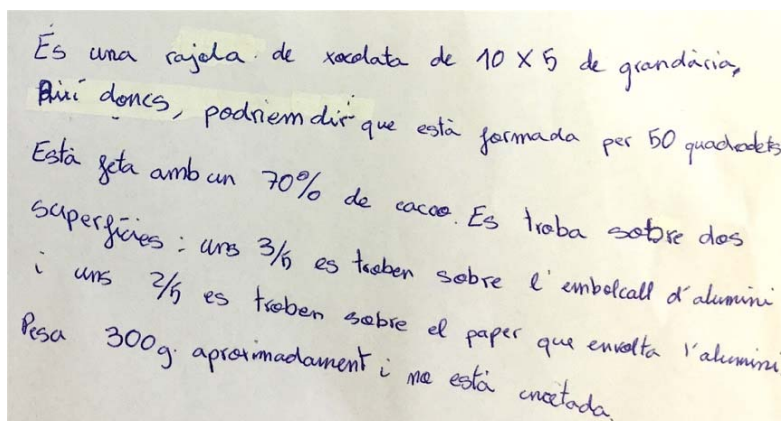 És una rajola de xocolata de 10 X 5 de grandària,
Així doncs, podriem dir que està formada per 50 quadradets
Està feta amb un 70% de cacao. Es troba sobre dos
superfícies: uns 3/5 es troben sobre l'embolcall d'alumini
i uns 2/5 es troben sobre el paper que envolta l'alumini
Pesa 300g. aproximadament i no està encetada.